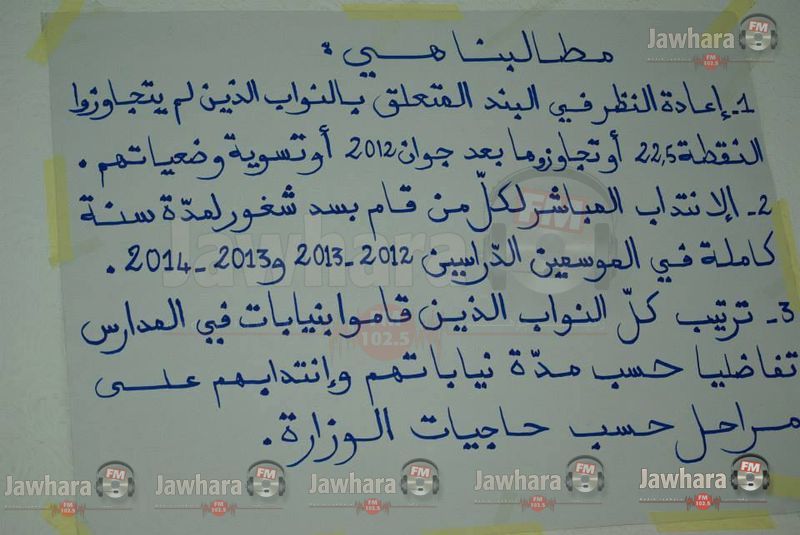 مطالبنا هي :
1- إعادة النظر في البند المتعلق بالنواب الذين لم يتجاوزوا
النقطة 22,5 أو تجاوزوها بعد جوان 2012 أو تسوية وضعياتهم .
2- الانتداب المباشر لكلّ من قام بسد شغور لمدّة سنة
كاملة في الموسمين الدّراسيين 2012-2013 و 2013-2014 .
3- ترتيب كلّ النواب الذين قاموا بنيابات في المدارس
تفاضليا حسب مدّة نياباتهم وإنتدابهم على
مراحل حسب حاجيات الوزارة .
Jawhara FM
102.5
Jawhara FM
102.5
Jawhara FM 102.5
Jawhara FM 102.5
Jawhara FM 102.5
Jawhara FM 102.5
Jawhara FM 102.5